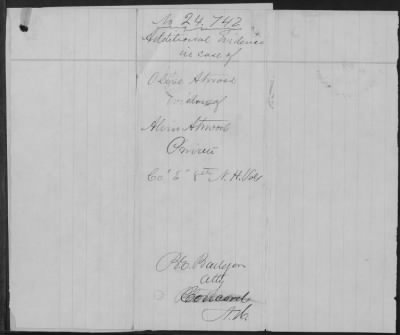 No 24.742
Additional Evidence
in case of
Olive Atwood
widow of
Alvin Atwood
Private
Co "E" 8th N.H. Vols
Atty
Concord
N.H.